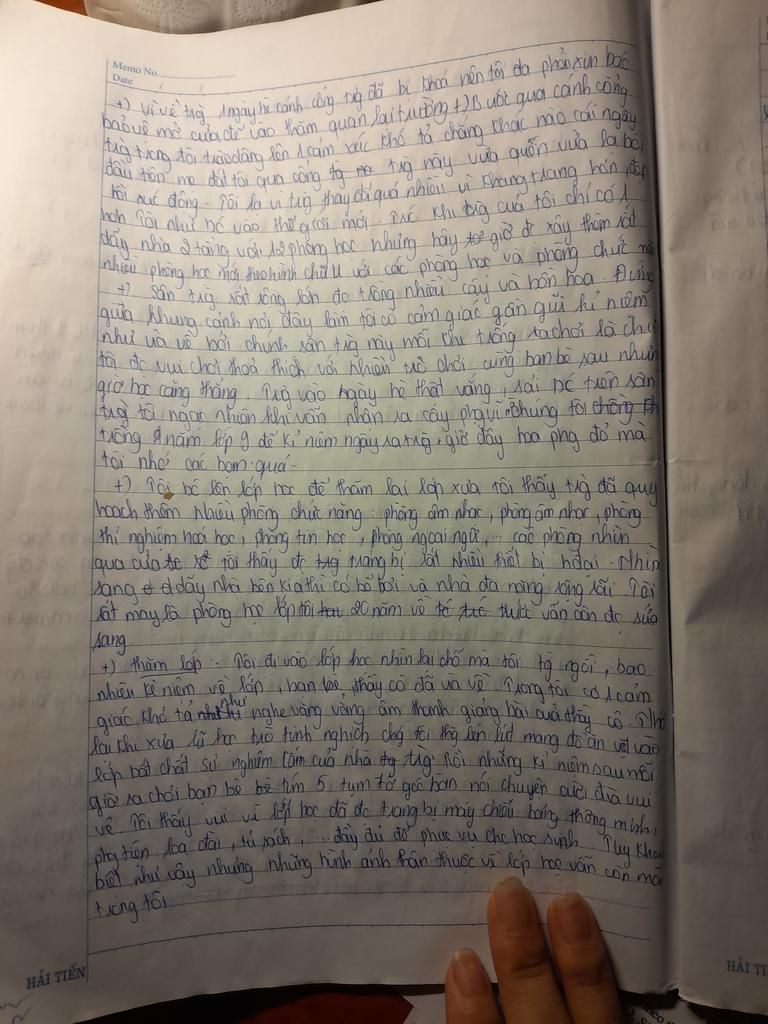 Memo No.
Date / /
+) Vì về trg 1 ngày hè cánh cổng trg đã bị khoá nên tôi đã phải xin bác
bảo vệ mở cửa để vào thăm quan lại trường +) Bước qua cánh cổng
trg trong tôi trào dâng lên 1 cảm xúc khó tả chẳng khác nào cái ngày
đầu tiên mẹ dắt tôi qua cổng trg này vừa quen vừa lạ bồi
hồi xúc động. Tôi lạ vì trg thay đổi quá nhiều vì khang trang hơn, đẹp
hơn Tôi như bc vào thế giới mới. Trc khi trg của tôi chỉ có 1
dãy nhà 2 tầng với 12 phòng học nhưng bây giờ đc xây thêm rất
nhiều phòng học mới theo hình chữ U với các phòng học và phòng chức
+) Sân trg rất rộng lớn đc trồng nhiều cây và bồn hoa. Đứng
giữa khung cảnh nơi đây làm tôi có cảm giác gần gũi kỉ niệm
như ùa về bởi chính sân trg này mỗi khi trống ra chơi là chúng
tôi đc vui chơi thoả thích với nhiều trò chơi cùng bạn bè sau những
giờ học căng thẳng. Trg vào ngày hè thật vắng, rải bc trên sân
trg tôi ngạc nhiên khi vẫn nhận ra cây phg vĩ chúng tôi
trồng năm lớp 9 để kỉ niệm ngày ra trg, giờ đây hoa phg đỏ mà
tôi nhớ các bạn quá.
+) Tôi bc lên lớp học để thăm lại lớp xưa Tôi thấy trg đã quy
hoạch thêm nhiều phòng chức năng: phòng âm nhạc, phòng âm nhạc, phòng
thí nghiệm hoá học, phòng tin học, phòng ngoại ngữ,... các phòng nhìn
qua cửa sổ tôi thấy đc trang bị rất nhiều thiết bị hđại. Nhìn
sang dãy nhà bên kia thì có bể bơi và nhà đa năng rộng rãi. Tôi
rất may là phòng học lớp tôi 20 năm về trước vẫn còn đc sửa
sang
+) Thăm lớp. Tôi đi vào lớp học nhìn lại chỗ mà tôi từng ngồi, bao
nhiêu kỉ niệm về lớp, bạn bè, thầy cô đã ùa về. Trong tôi có 1 cảm
giác khó tả như nghe văng vẳng âm thanh giảng bài của thầy cô. Nhớ
lại khi xưa lũ học trò tinh nghịch chg tôi thg lén lút mang đồ ăn vặt vào
lớp bất chất sự nghiêm cấm của nhà trg. Rồi những kỉ niệm sau mỗi
giờ ra chơi bạn bè túm 5 tụm 7 ở góc bàn nói chuyện cười đùa vui
vẻ. Tôi thấy vui vì lớp học đã đc trang bị máy chiếu bảng thông minh,
phg tiện loa đài, tủ sách, ... đầy đủ để phục vụ cho học sinh. Tuy khác
biệt như vậy nhưng những hình ảnh thân thuộc về lớp học vẫn còn mãi
trong tôi
HẢI TIẾN
HẢI TI